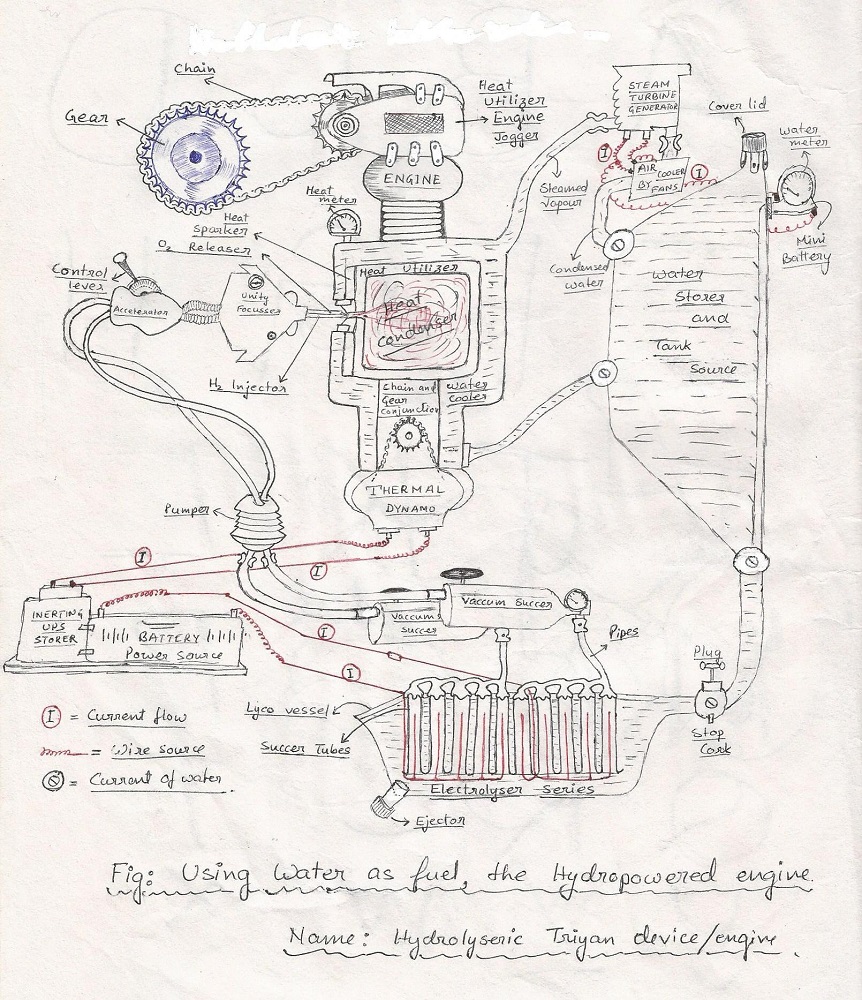 Chain
Gear
Heat
Utilizer
Engine
Jogger
STEAM
TURBINE
GENERATOR
Cover lid
Water
meter
I
AIR
COOLER
BY FANS
I
ENGINE
Heat
meter
Steamed
Vapour
Mini
Battery
Heat
Sparker
O₂ Releaser
Condensed
water
Control
lever
Accelerator
Unity
Focusser
Heat Utilizer
Heat
condenser
Water
Storer
and
Tank
Source
H₂ Injector
Chain and
Gear
Conjunction
water
cooler
THERMAL
DYNAMO
Pumper
I
I
INERTING
UPS
STORER
BATTERY
Power Source
Vaccum
Succer
Vaccum Succer
I
I
Pipes
Plug
Stop
Cork
I = Current flow
= Wire source
= Current of water.
Lyco vessel
Succer Tubes
Electrolyser series
Ejector
Fig: Using Water as fuel, the Hydropowered engine.
Name: Hydrolyseric Triyan device/engine.